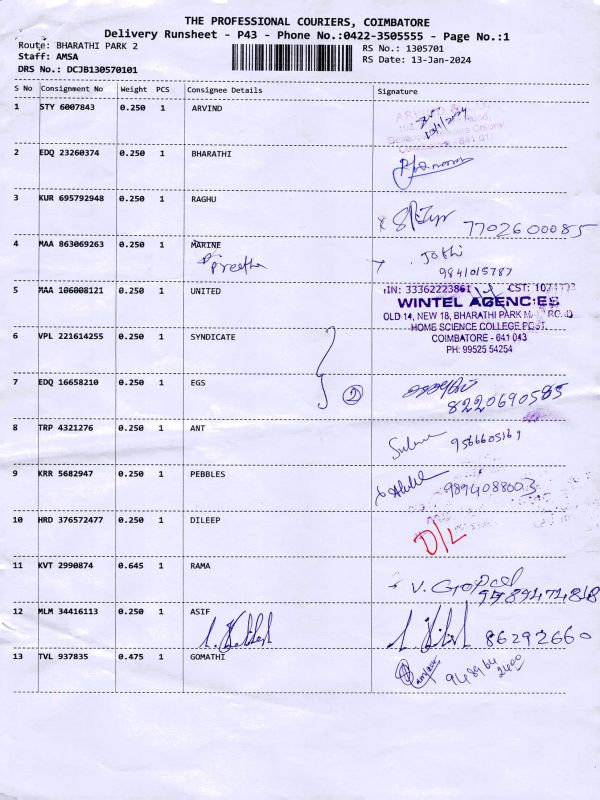 THE PROFESSIONAL COURIERS, COIMBATORE
Delivery Runsheet - P43 - Phone No.:0422-3505555 - Page No.:1
Route: BHARATHI PARK 2
RS No.: 1305701
Staff: AMSA
RS Date: 13-Jan-2024
DRS No.: DCJB130570101
S No Consignment No Weight PCS Consignee Details Signature
1 STY 6007843 0.250 1 ARVIND
2 EDQ 23260374 0.250 1 BHARATHI
3 KUR 695792948 0.250 1 RAGHU
7702600085
4 MAA 863069263 0.250 1 MARINE
Preetha
Jothi
9841015787
5 MAA 106008121 0.250 1 UNITED
TIN: 33362223861 CST:
WINTEL AGENCIES
OLD 14, NEW 18, BHARATHI PARK MAIN ROAD
HOME SCIENCE COLLEGE POST,
COIMBATORE - 641 043
PH: 99525 54254
6 VPL 221614255 0.250 1 SYNDICATE
7 EDQ 16658210 0.250 1 EGS
2
8220690585
8 TRP 4321276 0.250 1 ANT
9566605169
9 KRR 5682947 0.250 1 PEBBLES
9894088003
10 HRD 376572477 0.250 1 DILEEP
D/L
11 KVT 2990874 0.645 1 RAMA
V. Gopal
12 MLM 34416113 0.250 1 ASIF
86292660
13 TVL 937835 0.475 1 GOMATHI
948964
2400